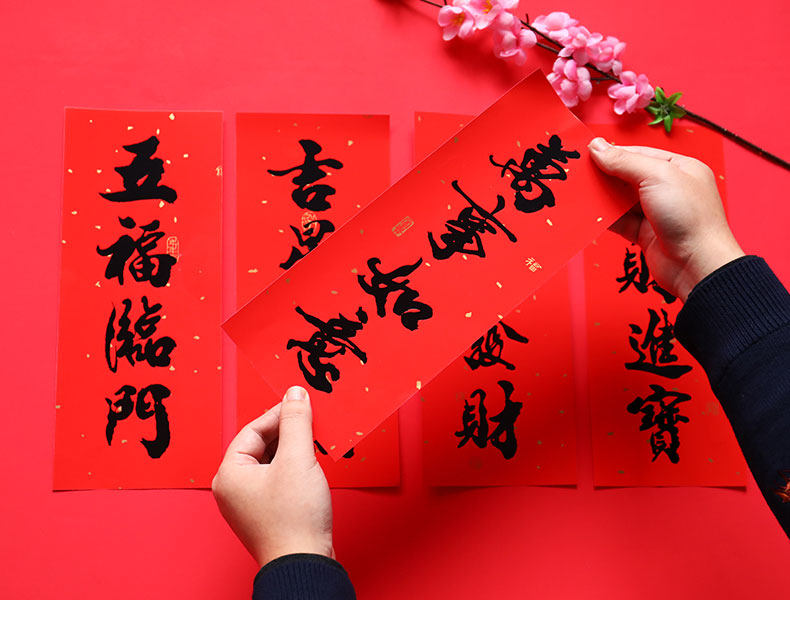 五福臨門
吉星
萬事如意
發財
財進寶
福